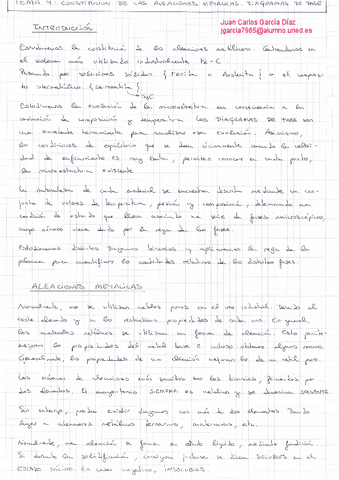 TEMA 4: CONSTITUCION DE LAS ALEACIONES METALICAS. DIAGRAMAS DE FASE
Juan Carlos García Díaz
jgarcia7965@alumno.uned.es
INTRODUCCIÓN
Estudiaremos la constitución de las aleaciones metálicas. Centrándonos en
el sistema más utilizado industrialmente Fe-C
Pasando por soluciones sólidas (ferrita o austenita) o el compuesto
intersticial (cementita)
Fe3C
Estudiaremos la evolución de la microestructura en consecuencia a la
variación de composición y temperatura. Los DIAGRAMAS DE FASE son
una excelente herramienta para visualizar esa evolución. Asimismo,
las condiciones de equilibrio que se dan únicamente cuando la veloci-
dad de enfriamiento es muy lenta, permiten conocer en cada punto,
la microestructura existente
La naturaleza de cada material se encuentra descrita mediante un con-
junto de valores de temperatura, presión y composición, determinando una
condición de estado que lleva asociada una serie de fases microscópicas,
cuyo número viene dado por la regla de las fases.
Estudiaremos distintos diagramas binarios y aplicaremos la regla de la
palanca para cuantificar las cantidades relativas de las distintas fases.
ALEACIONES METALICAS
Normalmente, no se utilizan metales puros en el uso industrial. Debido al
coste elevado y a las reducidas propiedades de cada uno. En general,
los materiales metálicos se utilizan en forma de aleación. Esto puede
mejorar las propiedades del metal base e incluso obtener alguna nueva.
Generalmente, las propiedades de una aleación mejoran las de un metal puro.
Los sistemas de aleaciones más sencillos son los binarios, formados por
dos elementos. El mayoritario SIEMPRE es metálico y se denomina SOLVENTE.
Sin embargo, pueden existir aleaciones con más de dos elementos. Dando
lugar a aleaciones metálicas ternarias, cuaternarias, etc.
Normalmente, una aleación se forma en estado líquido, mediante fundición.
Si durante la solidificación, continúan juntas se dicen SOLUBLES en el
ESTADO SÓLIDO. En caso negativo, INSOLUBLES.